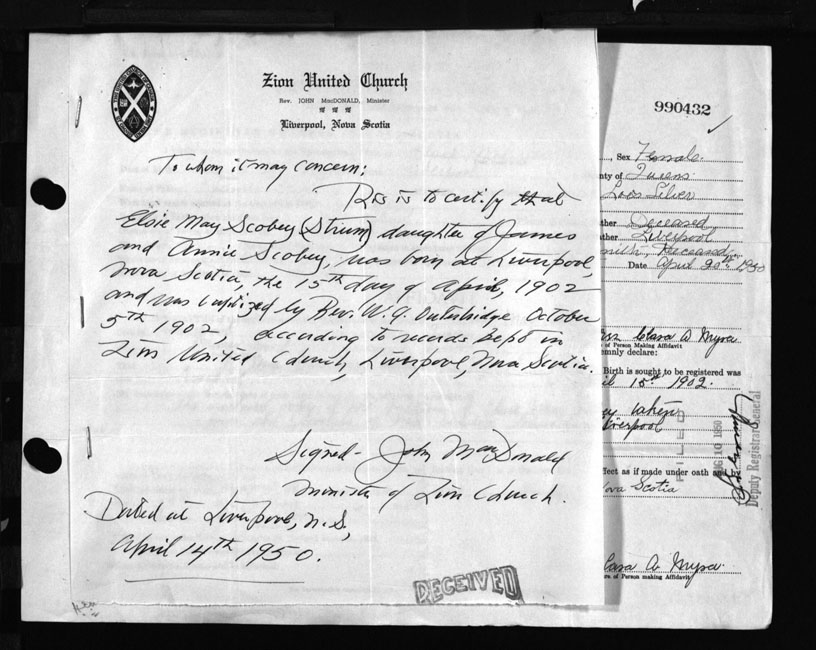 Zion United Church
Rev. JOHN MacDONALD, Minister
Liverpool, Nova Scotia
To whom it may concern:
This is to certify that
Elsie May Scobey (Strum) daughter of James
and Annie Scobey, was born at Liverpool,
Nova Scotia, the 15th day of April, 1902
and was baptized by Rev. W. G. Outerbridge October
5th 1902, according to records kept in
Zion United Church, Liverpool, Nova Scotia.
Signed - John MacDonald
Minister of Zion Church.
Dated at Liverpool, N.S,
April 14th 1950.
RECEIVED
990432
, Sex Female.
nty of Queens
Deceased
ather Liverpool
Deceased
Date April 20th 1950
Clara A Myra
e of Person Making Affidavit
mnly declare:
Birth is sought to be registered was
il 15th 1902.
Liverpool
FILED
AUG 10 1950
Deputy Registrar General
ffect as if made under oath an
ova Scotia
Clara A Myra
re of Person making Affidavit